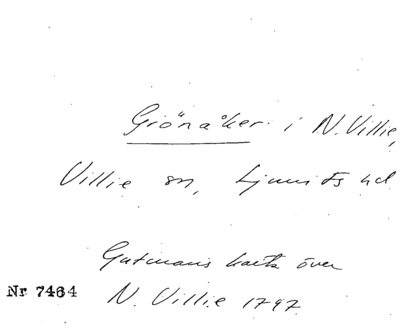 Grönåker i N. Villie,
Villie sn, Ljunits hd
Gutmans karta över
Nr 7464 N. Villie 1797